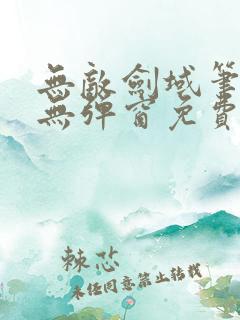 無敵劍域筆
無彈窗免費
棘芯
未经同意禁止转载